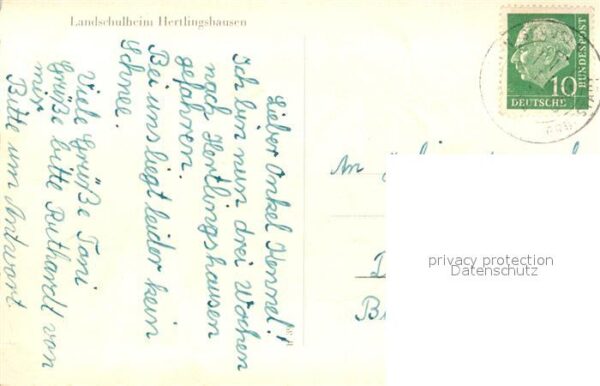 Landschulheim Hertlingshausen
Lieber Onkel Hennel!
Ich bin nun drei Wochen
nach Hertlingshausen
gefahren.
Bei uns liegt leider kein
Schnee.
Viele Grüße Toni
Grüße bitte Ruthardt von
mir.
Bitte um Antwort.
10
DEUTSCHE
BUNDESPOST
An
privacy protection
Datenschutz